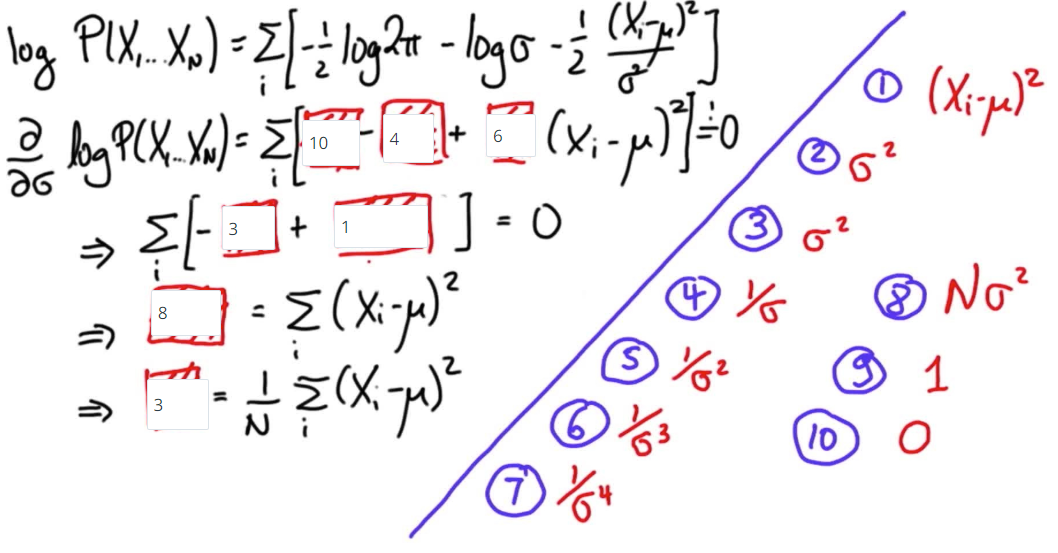 log P(X₁...X_N) = Σ_i [-1/2 log2π - logσ - 1/2 (Xᵢ-μ)²/σ²]
∂/∂σ log P(X₁...X_N) = Σ_i [10 - 4 + 6 (Xᵢ-μ)²] != 0
⇒ Σ_i [- 3 + 1 ] = 0
⇒ 8 = Σ_i (Xᵢ-μ)²
⇒ 3 = 1/N Σ_i (Xᵢ-μ)²
① (Xᵢ-μ)²
② σ²
③ σ²
④ 1/σ
⑧ Nσ²
⑤ 1/σ²
⑨ 1
⑥ 1/σ³
⑩ 0
⑦ 1/σ⁴